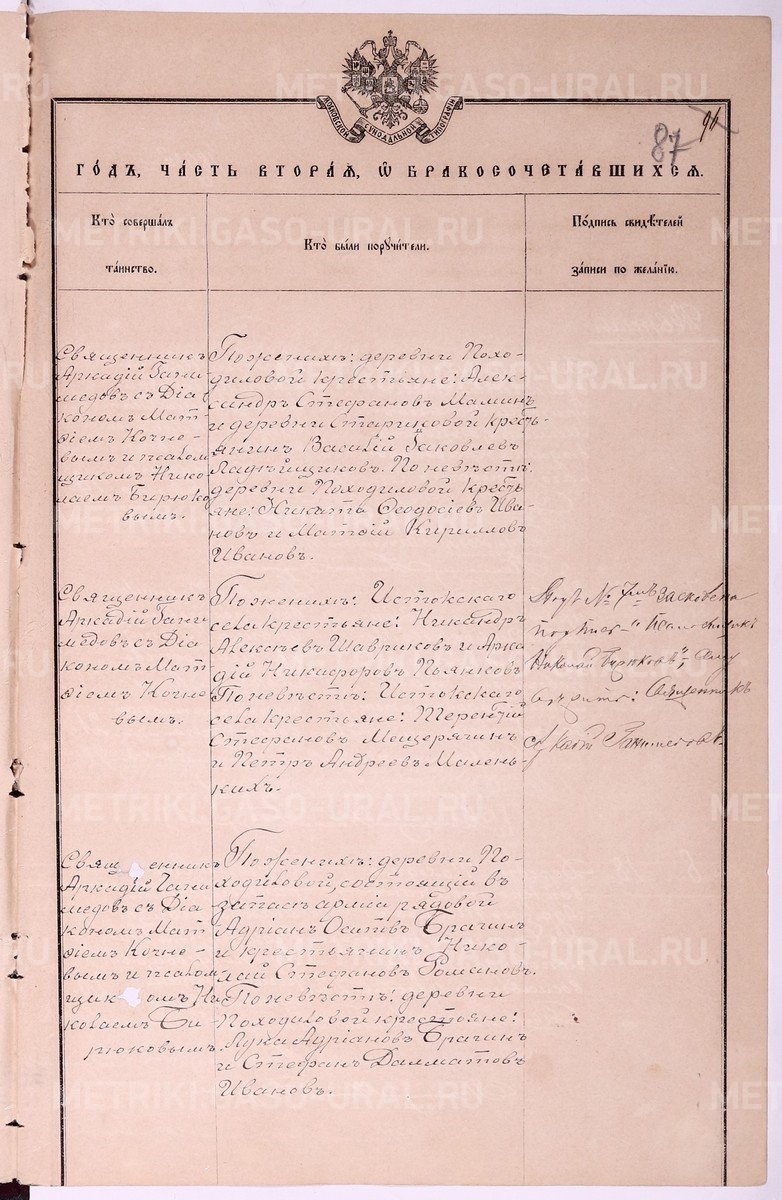 МОСКОВСКОЙ СѴНОДАЛЬНОЙ ТИПОГРАФІИ
87
ГО́ДЪ, ЧА́СТЬ ВТОРА́Я, Ѡ҆ БРАКОСОЧЕТА́ВШИХСЯ.
Кто̀ соверша́лъ
та́инство.
Кто̀ бы́ли порꙋчи́тели.
По́дпись свидѣ́телей
за́писи по жела́нїю.
Священникъ
Аркадій Гани-
медовъ съ Діа
кономъ Мат
ѳіемъ Кочне-
вымъ и псалом
щикомъ Нико
лаемъ Бирюко
вымъ.
По женихѣ: деревни Похо-
диловой крестьяне: Алек-
сандръ Стефановъ Маминъ
и деревни Стариковой кресть-
янинъ Василій Іаковлевъ
Ладѣйщиковъ. По невѣстѣ:
деревни Походиловой кресть
яне: Никита Ѳеодосіевъ Ива-
новъ и Матѳій Кирилловъ
Ивановъ.
Священникъ
Аркадій Гани
медовъ съ Діа
кономъ Мат
ѳіемъ Кочне-
вымъ.
По женихѣ: Истокскаго
села крестьяне: Никандръ
Алексѣевъ Шавриковъ и Арка
дій Никифоровъ Пьянковъ
По невѣстѣ: Истокскаго
села крестьяне: Терентій
Стефановъ Мещерягинъ
и Петръ Андреевъ Малень-
кихъ.
подпись "Псаломщикъ
Николай Бирюковъ",
Священникъ
Аркадій Ганимедовъ
Священникъ
Аркадій Гани
медовъ съ Діа
кономъ Мат
ѳіемъ Кочне-
вымъ и псалом
щикомъ Ни
колаемъ Би-
рюковымъ.
По женихѣ: деревни По-
ходиловой, состоящій въ
запасѣ арміи рядовой
Адріанъ Осиповъ Брагинъ
и крестьянинъ Нико-
лай Стефановъ Романовъ.
По невѣстѣ: деревни
Походиловой крестьяне:
Лука Адріановъ Брагинъ
и Стефанъ Далматовъ
Ивановъ.
METRIKI.GASO-URAL.RU